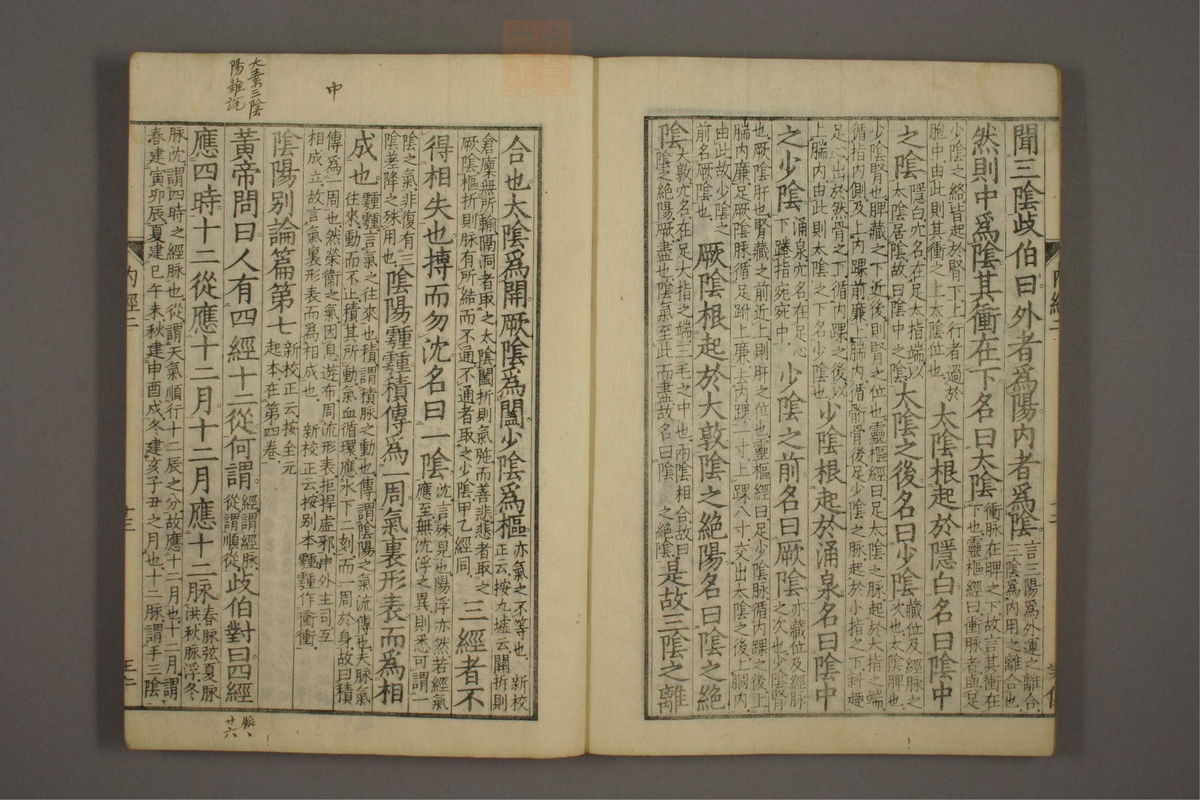 聞三陰歧伯曰外者爲陽内者爲陰
言三陽爲外運之離合
三陰爲内用之離合也
然則中爲陰其衝在下名曰太陰
衝脉在脾之下故言其衝在
下也靈樞經曰衝脉者與足
少陰之絡皆起於腎下上行者過於
胞中由此則其衝之上太陰位也
太陰根起於隱白名曰陰中
之陰
隱白穴名在足大指端以
太陰居陰故曰陰中之陰
太陰之後名曰少陰
藏位及經脉之
次也太陰脾也
少陰腎也脾藏之下近後則腎之位也靈樞經曰足太陰之脉起於大指之端
循指内側及上内踝前廉上腨内循䯒骨後足少陰之脉起於小指之下斜趣
足心出於然骨之下循内踝之後以
上腨内由此則太陰之下名少陰也
少陰根起於涌泉名曰陰中
之少陰
涌泉穴名在足心
下踡指宛宛中
少陰之前名曰厥陰
亦藏位及經脉
之次也少陰腎
也厥陰肝也腎藏之前近上則肝之位也靈樞經曰足少陰脉循内踝之後上
腨内廉足厥陰脉循足跗上廉去内踝一寸上踝八寸交出太陰之後上膕内
由此故少陰之
前名厥陰也
厥陰根起於大敦陰之絶陽名曰陰之絶
陰
大敦穴名在足大指之端三毛之中也兩陰相合故曰
陰之絶陽厥盡也陰氣至此而盡故名曰陰之絶陰
是故三陰之離
合也太陰爲開厥陰爲闔少陰爲樞
亦氣之不等也 新校
正云按九墟云關折則
倉廩無所輸隔洞者取之太陰闔折則氣㢮而善悲悲者取之
厥陰樞折則脉有所結而不通不通者取之少陰甲乙經同
三經者不
得相失也搏而勿沈名曰一陰
沈言殊見也陽浮亦然若經氣
應至無沈浮之異則悉可謂一
陰之氣非復有三
陰差降之殊用也
陰陽䨦䨦積傳爲一周氣裏形表而爲相
成也
䨦䨦言氣之往來也積謂積脉之動也傳謂陰陽之氣流傳也夫脉氣
往來動而不止積其所動氣血循環應水下二刻而一周於身故曰積
傳爲一周也然榮衞之氣因息遊布周流形表拒捍虚邪中外主司互
相成立故言氣裏形表而爲相成也 新校正云按别本䨦䨦作衝衝
陰陽别論篇第七
新校正云按全元
起本在第四卷
黄帝問曰人有四經十二從何謂
經謂經脉
從謂順從
歧伯對曰四經
應四時十二從應十二月十二月應十二脉
春脉弦夏脉
洪秋脉浮冬
脉沈謂四時之經脉也從謂天氣順行十二辰之分故應十二月也十二月謂
春建寅卯辰夏建巳午未秋建申酉戌冬建亥子丑之月也十二脉謂手三陰
内經二
十三
王二
中
太素三陰
陽雜說
廿六